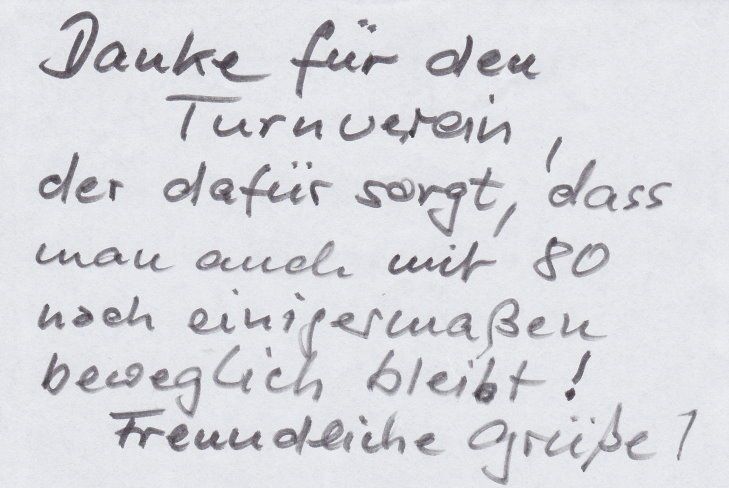 Danke für den
Turnverein,
der dafür sorgt, dass
man auch mit 80
noch einigermaßen
beweglich bleibt!
Freundliche Grüße!